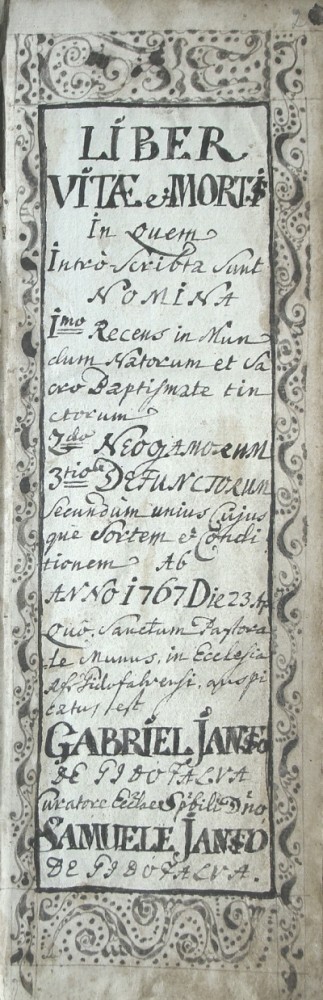 LIBER
VITÆ et MORTIS
In Quem
Intro Scribta Sunt
NOMINA
1mo Recens in Mun
dum Natorum et Sa
cro Baptismate tin
ctorum
2do NEOGAMORUM
3tio DEFUNCTORUM
Secundum unius Cujus
que Sortem et Condi
tionem Ab
ANNO 1767 Die 23 Ap
Quo Sanctum Pastora
le Munus, in Ecclesia
Gidofalvensi, auspi
catus est
GABRIEL JANTO
DE GIDOFALVA
Curatore Eccl̄ae Spbili Dn̄o
SAMUELE JANTO
DE GIDOFALVA.